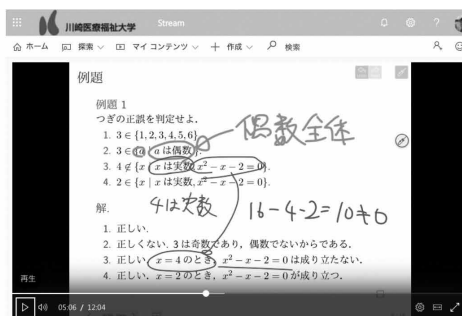 川崎医療福祉大学 Stream ?
ホーム 探索 マイ コンテンツ 作成 検索
例題
例題 1
つぎの正誤を判定せよ.
1. 3 ∈ {1, 2, 3, 4, 5, 6}.
2. 3 ∈ {a | a は偶数}.
偶数全体
3. 4 ∉ {x | x は実数, x² − x − 2 = 0}.
4. 2 ∈ {x | x は実数, x² − x − 2 = 0}.
解.
4は実数
16-4-2=10≠0
1. 正しい.
2. 正しくない. 3 は奇数であり, 偶数でないからである.
3. 正しい. x = 4 のとき, x² − x − 2 = 0 は成り立たない.
4. 正しい. x = 2 のとき, x² − x − 2 = 0 が成り立つ.
再生
05:06 / 12:04